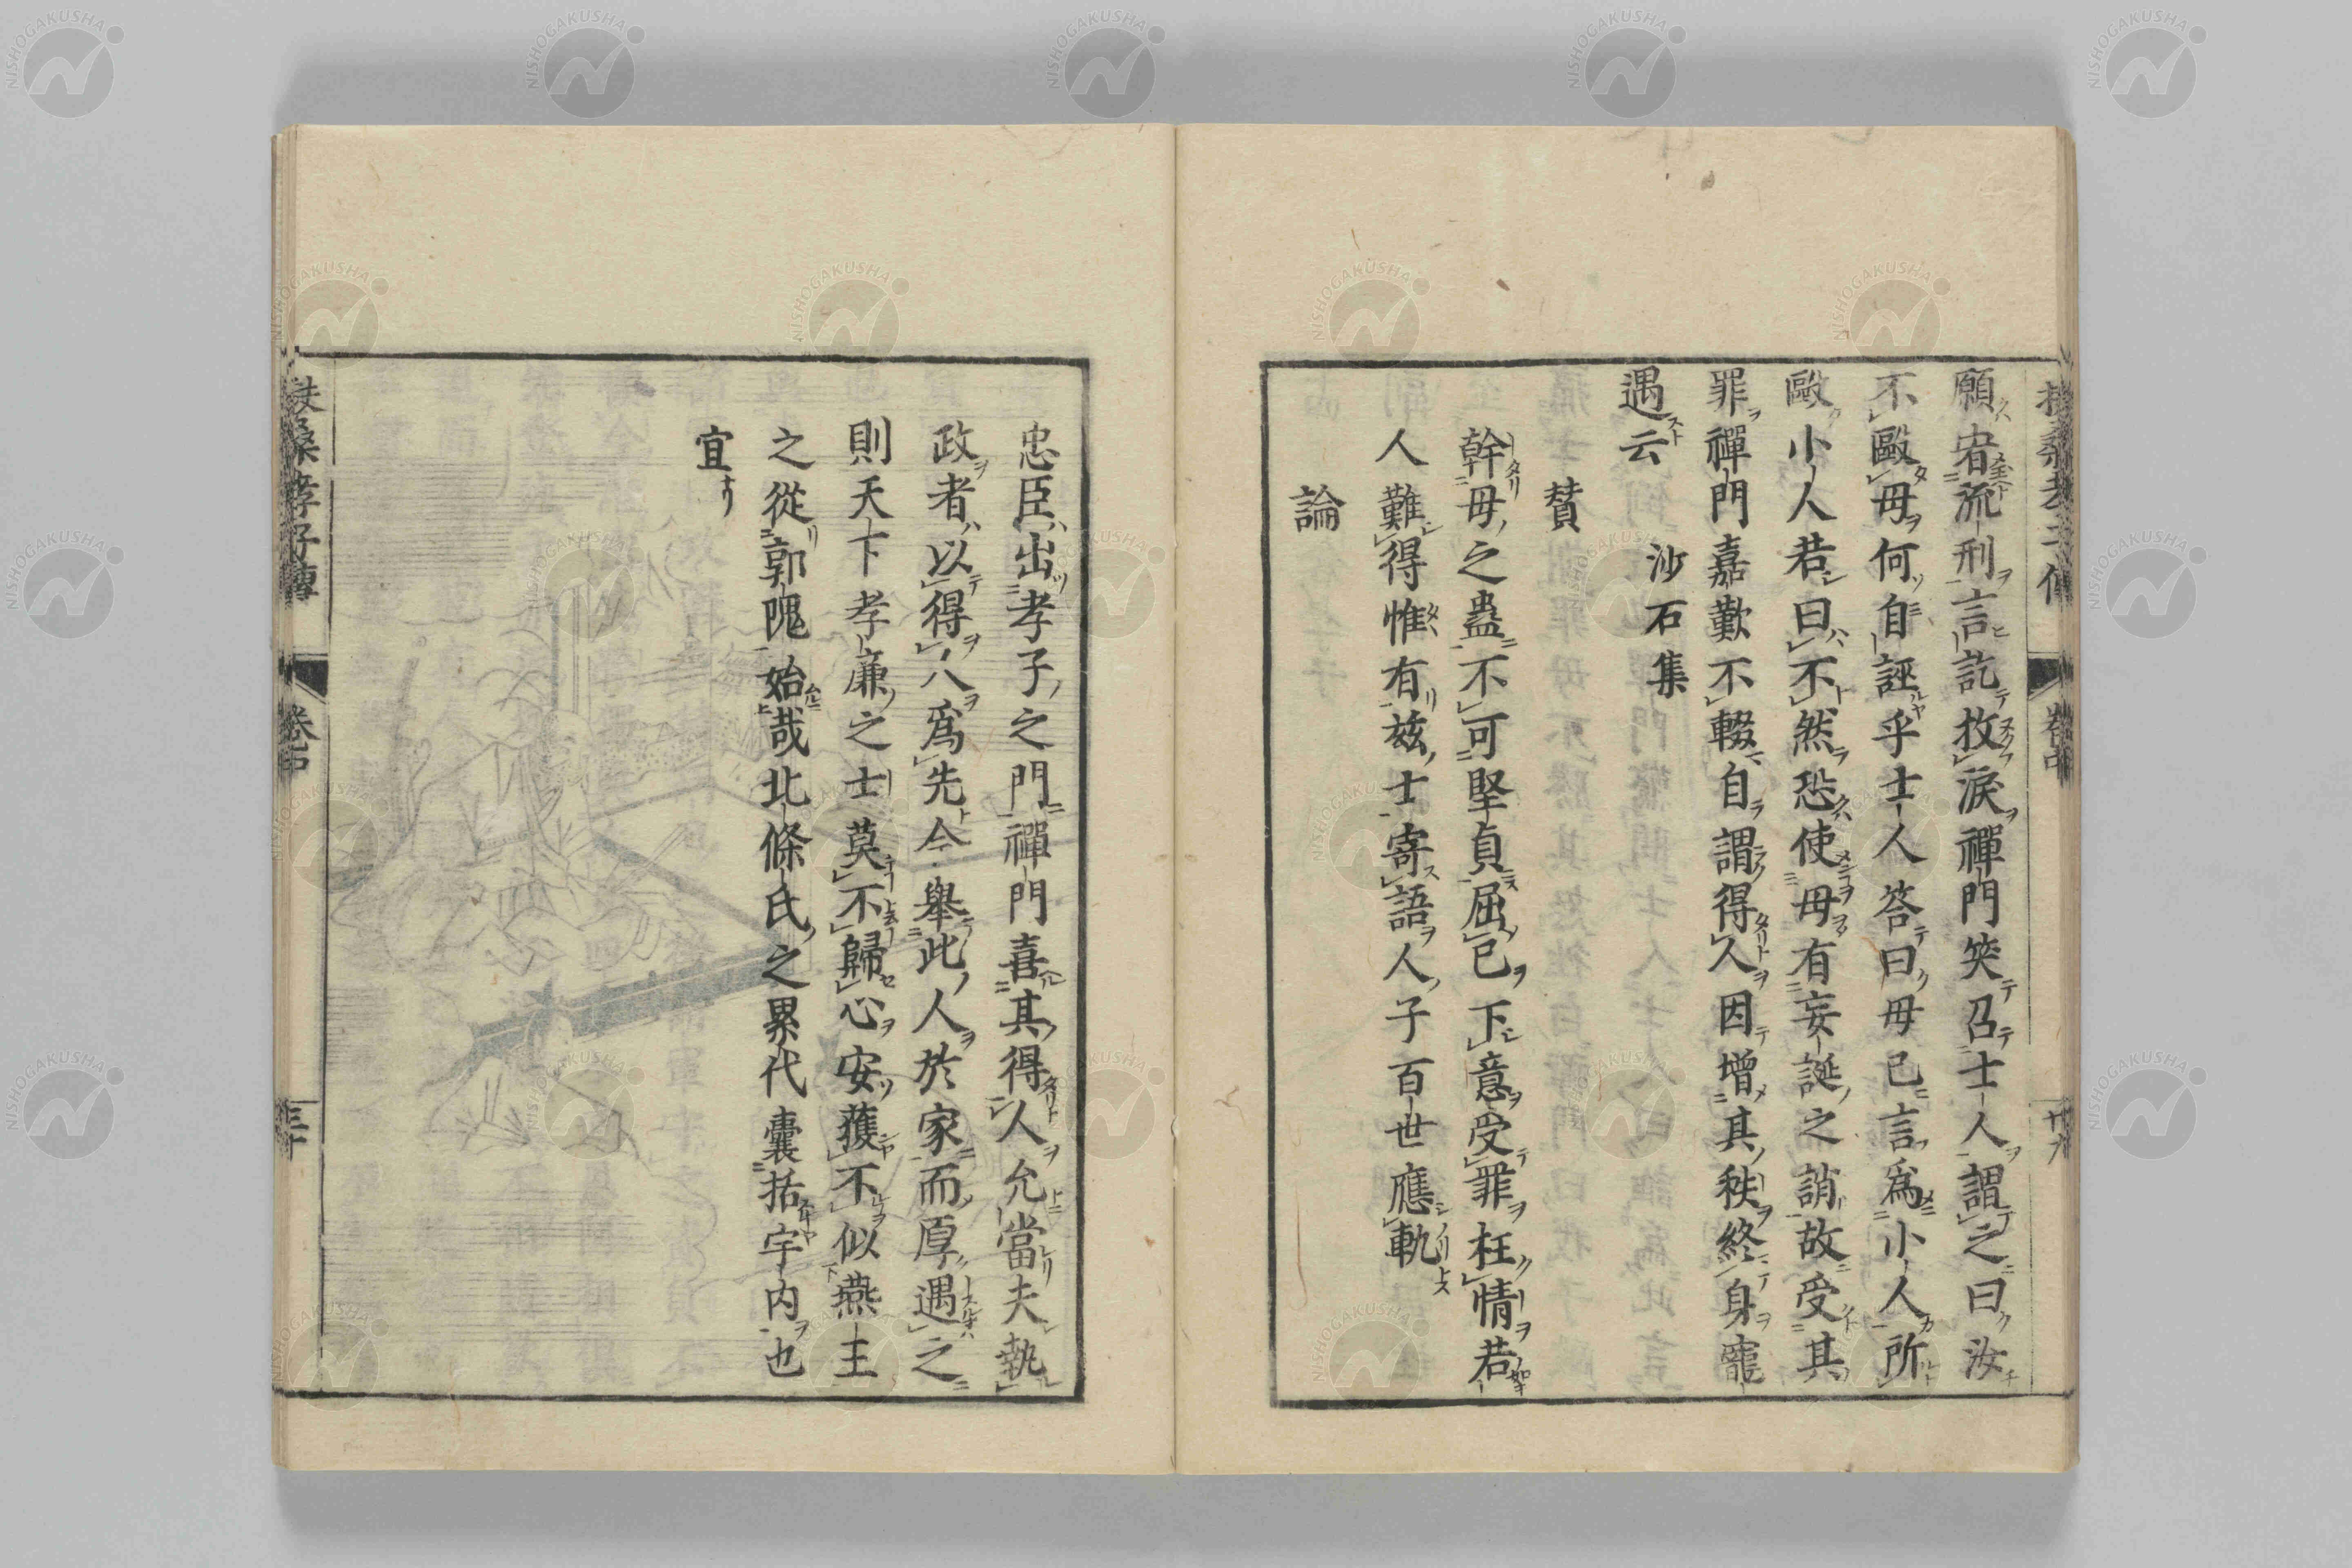 願宥流刑言訖抆淚禪門笑召士人謂之曰汝
不毆母何自誣乎士人答曰母已言爲小人所
毆小人若曰不然恐使母有妄誕之誚故受其
罪禪門嘉歎不輟自謂得人因增其秩終身寵
遇云 沙石集
贊
幹母之蠱不可堅貞屈已下意受罪枉情若
人難得惟有玆士寄語人子百世應軌
論
忠臣出孝子之門禪門喜其得人允當夫執
政者以得人爲先今舉此人於家而厚遇之
則天下孝廉之士莫不歸心安獲不似燕王
之從郭隗始哉北條氏之累代囊括宇内也
宜
扶桑孝子傳 卷中 三十
NISHOGAKUSHA